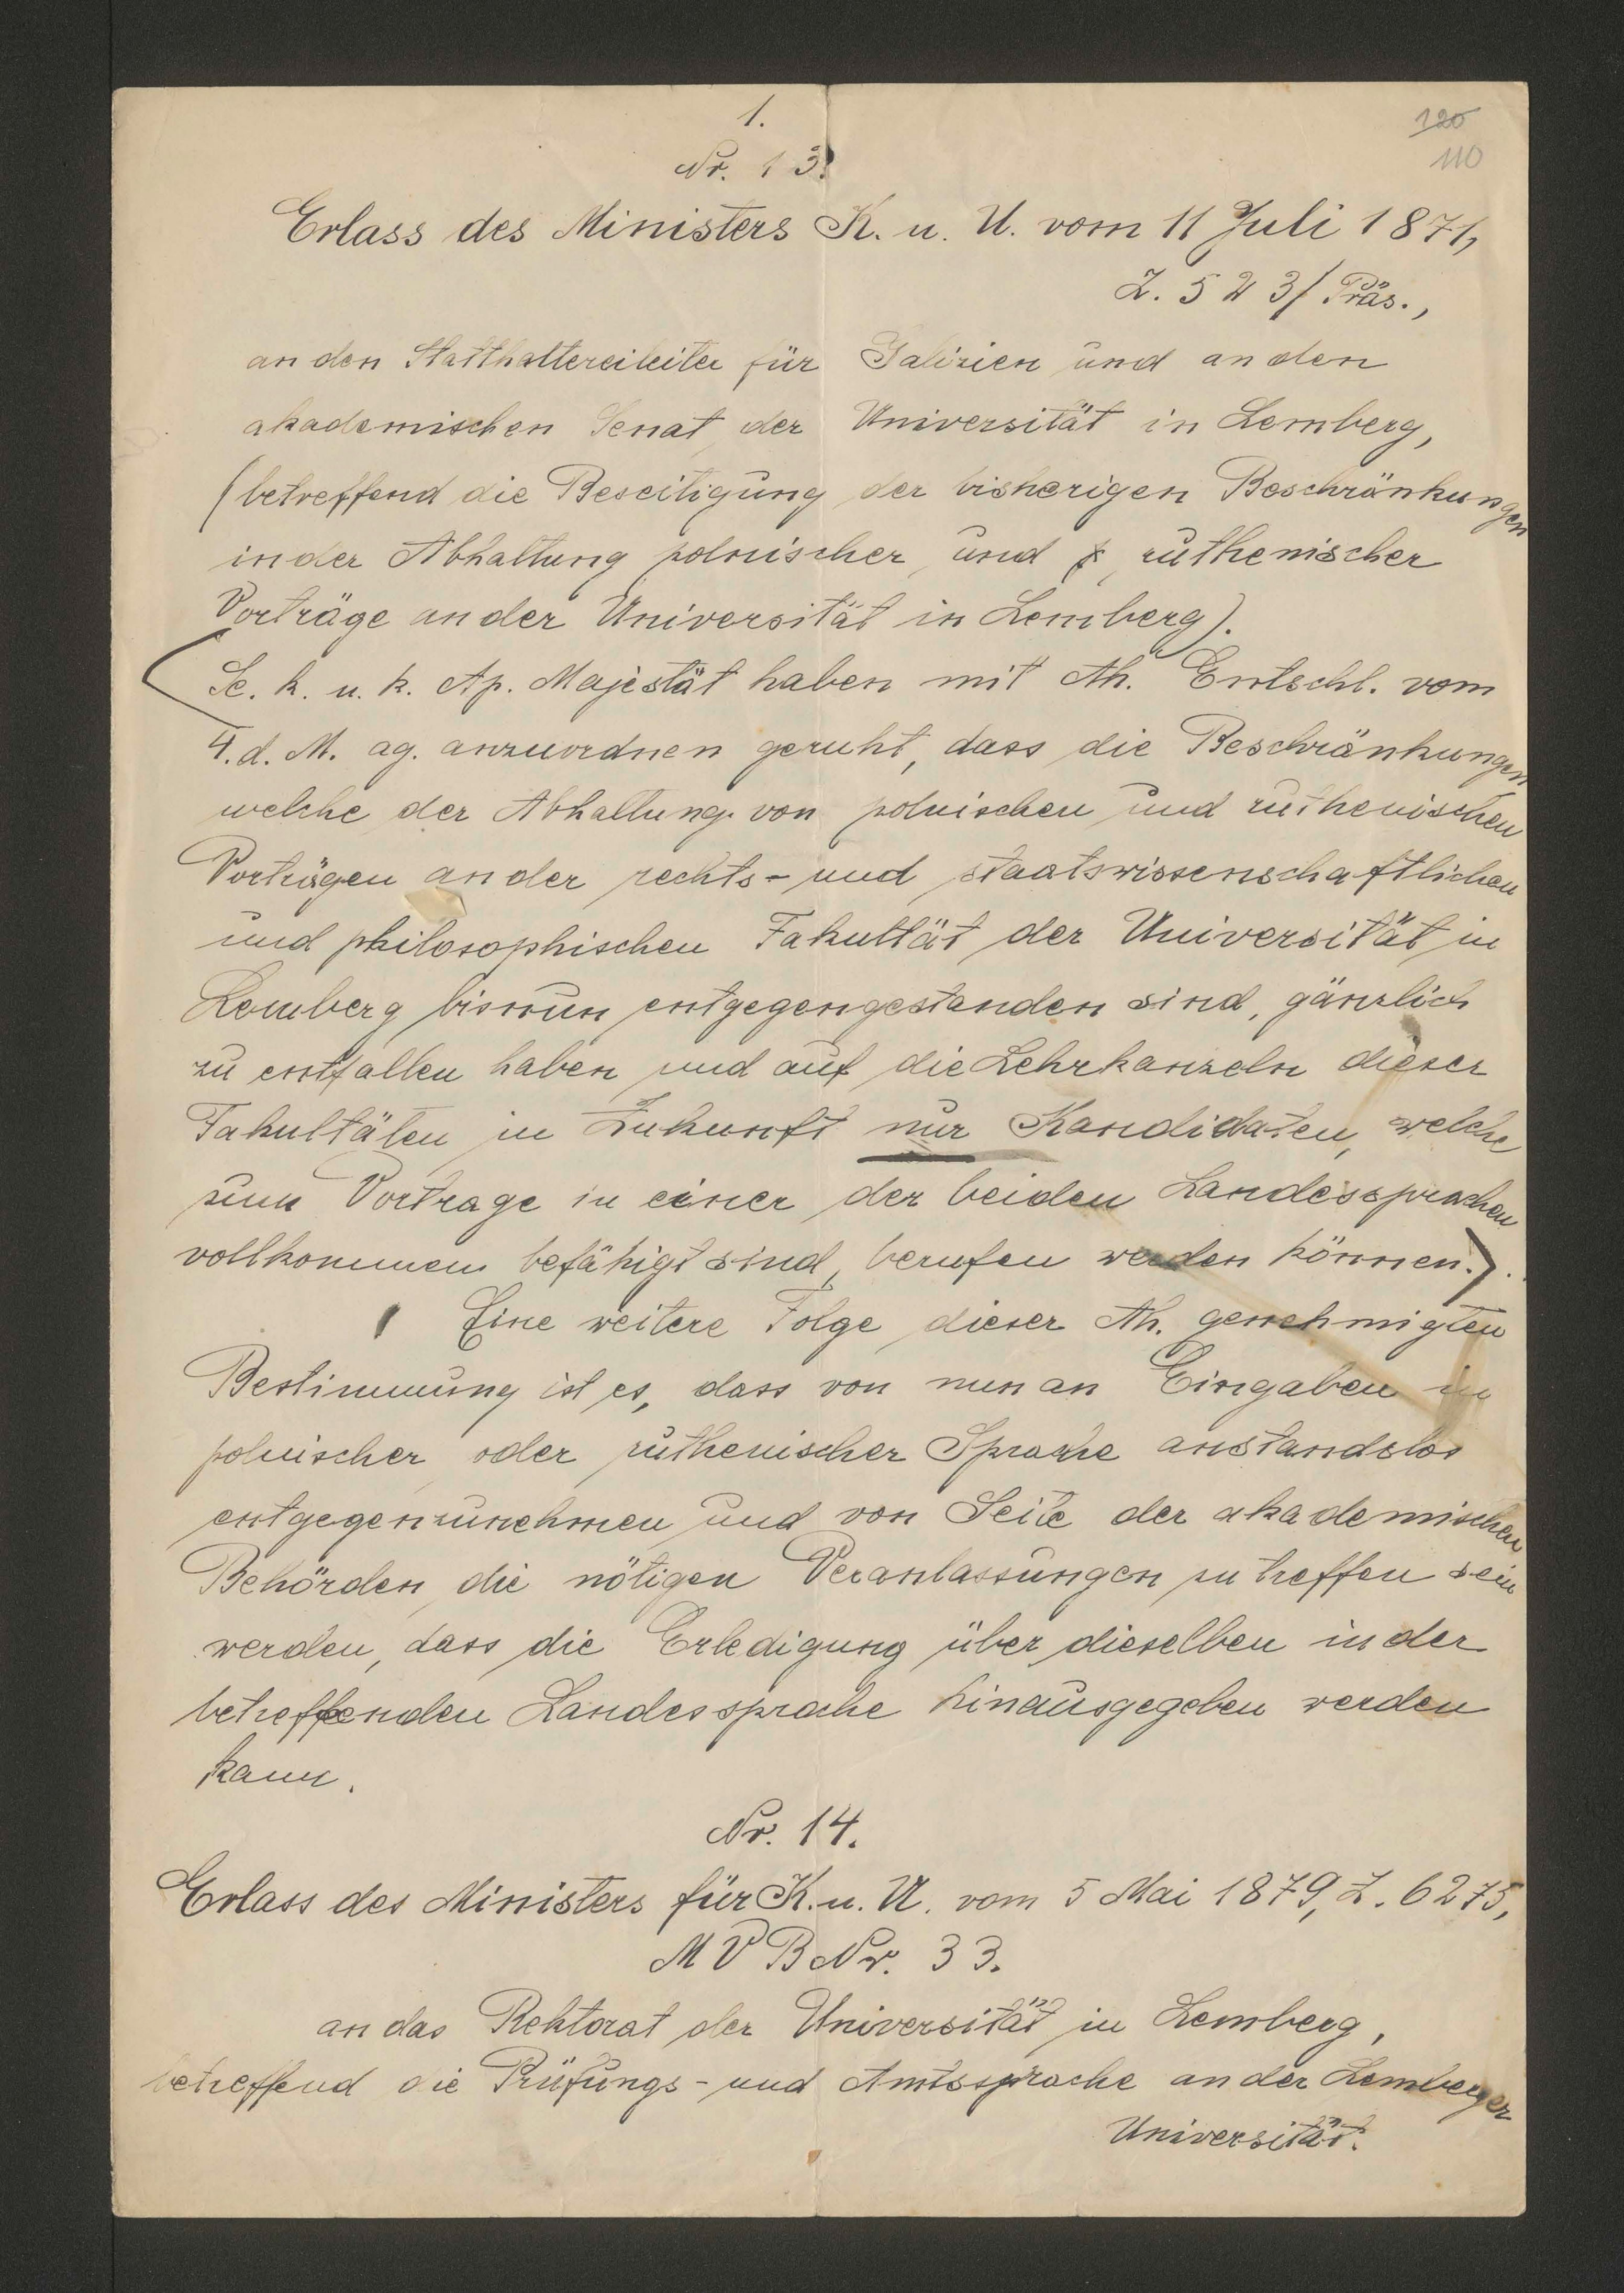 1.
120
110
Nr. 13.
Erlass des Ministers K. u. U. vom 11 Juli 1871,
Z. 523/Präs.,
an den Statthaltereileiter für Galizien und an den
akademischen Senat der Universität in Lemberg,
(betreffend die Beseitigung der bisherigen Beschränkungen
in der Abhaltung polnischer und ruthenischer
Vorträge an der Universität in Lemberg).
Se. k. u. k. Ap. Majestät haben mit Ah. Entschl. vom
4. d. M. ag. anzuordnen geruht, dass die Beschränkungen
welche der Abhaltung von polnischen und ruthenischen
Vorträgen an der rechts- und staatswissenschaftlichen
und philosophischen Fakultät der Universität in
Lemberg bisnun entgegengestanden sind, gänzlich
zu entfallen haben und auf die Lehrkanzeln dieser
Fakultäten in Zukunft nur Kandidaten, welche
zum Vortrage in einer der beiden Landessprachen
vollkommen befähigt sind, berufen werden können.)
Eine weitere Folge dieser Ah. genehmigten
Bestimmung ist es, dass von nun an Eingaben in
polnischer oder ruthenischer Sprache anstandslos
entgegenzunehmen und von Seite der akademischen
Behörden die nötigen Veranlassungen zu treffen sein
werden, dass die Erledigung über dieselben in der
betreffenden Landessprache hinausgegeben werden
kann.
Nr. 14.
Erlass des Ministers für K. u. U. vom 5 Mai 1879, Z. 6275,
M V B Nr. 33.
an das Rektorat der Universität in Lemberg,
betreffend die Prüfungs- und Amtssprache an der Lemberger
Universität.